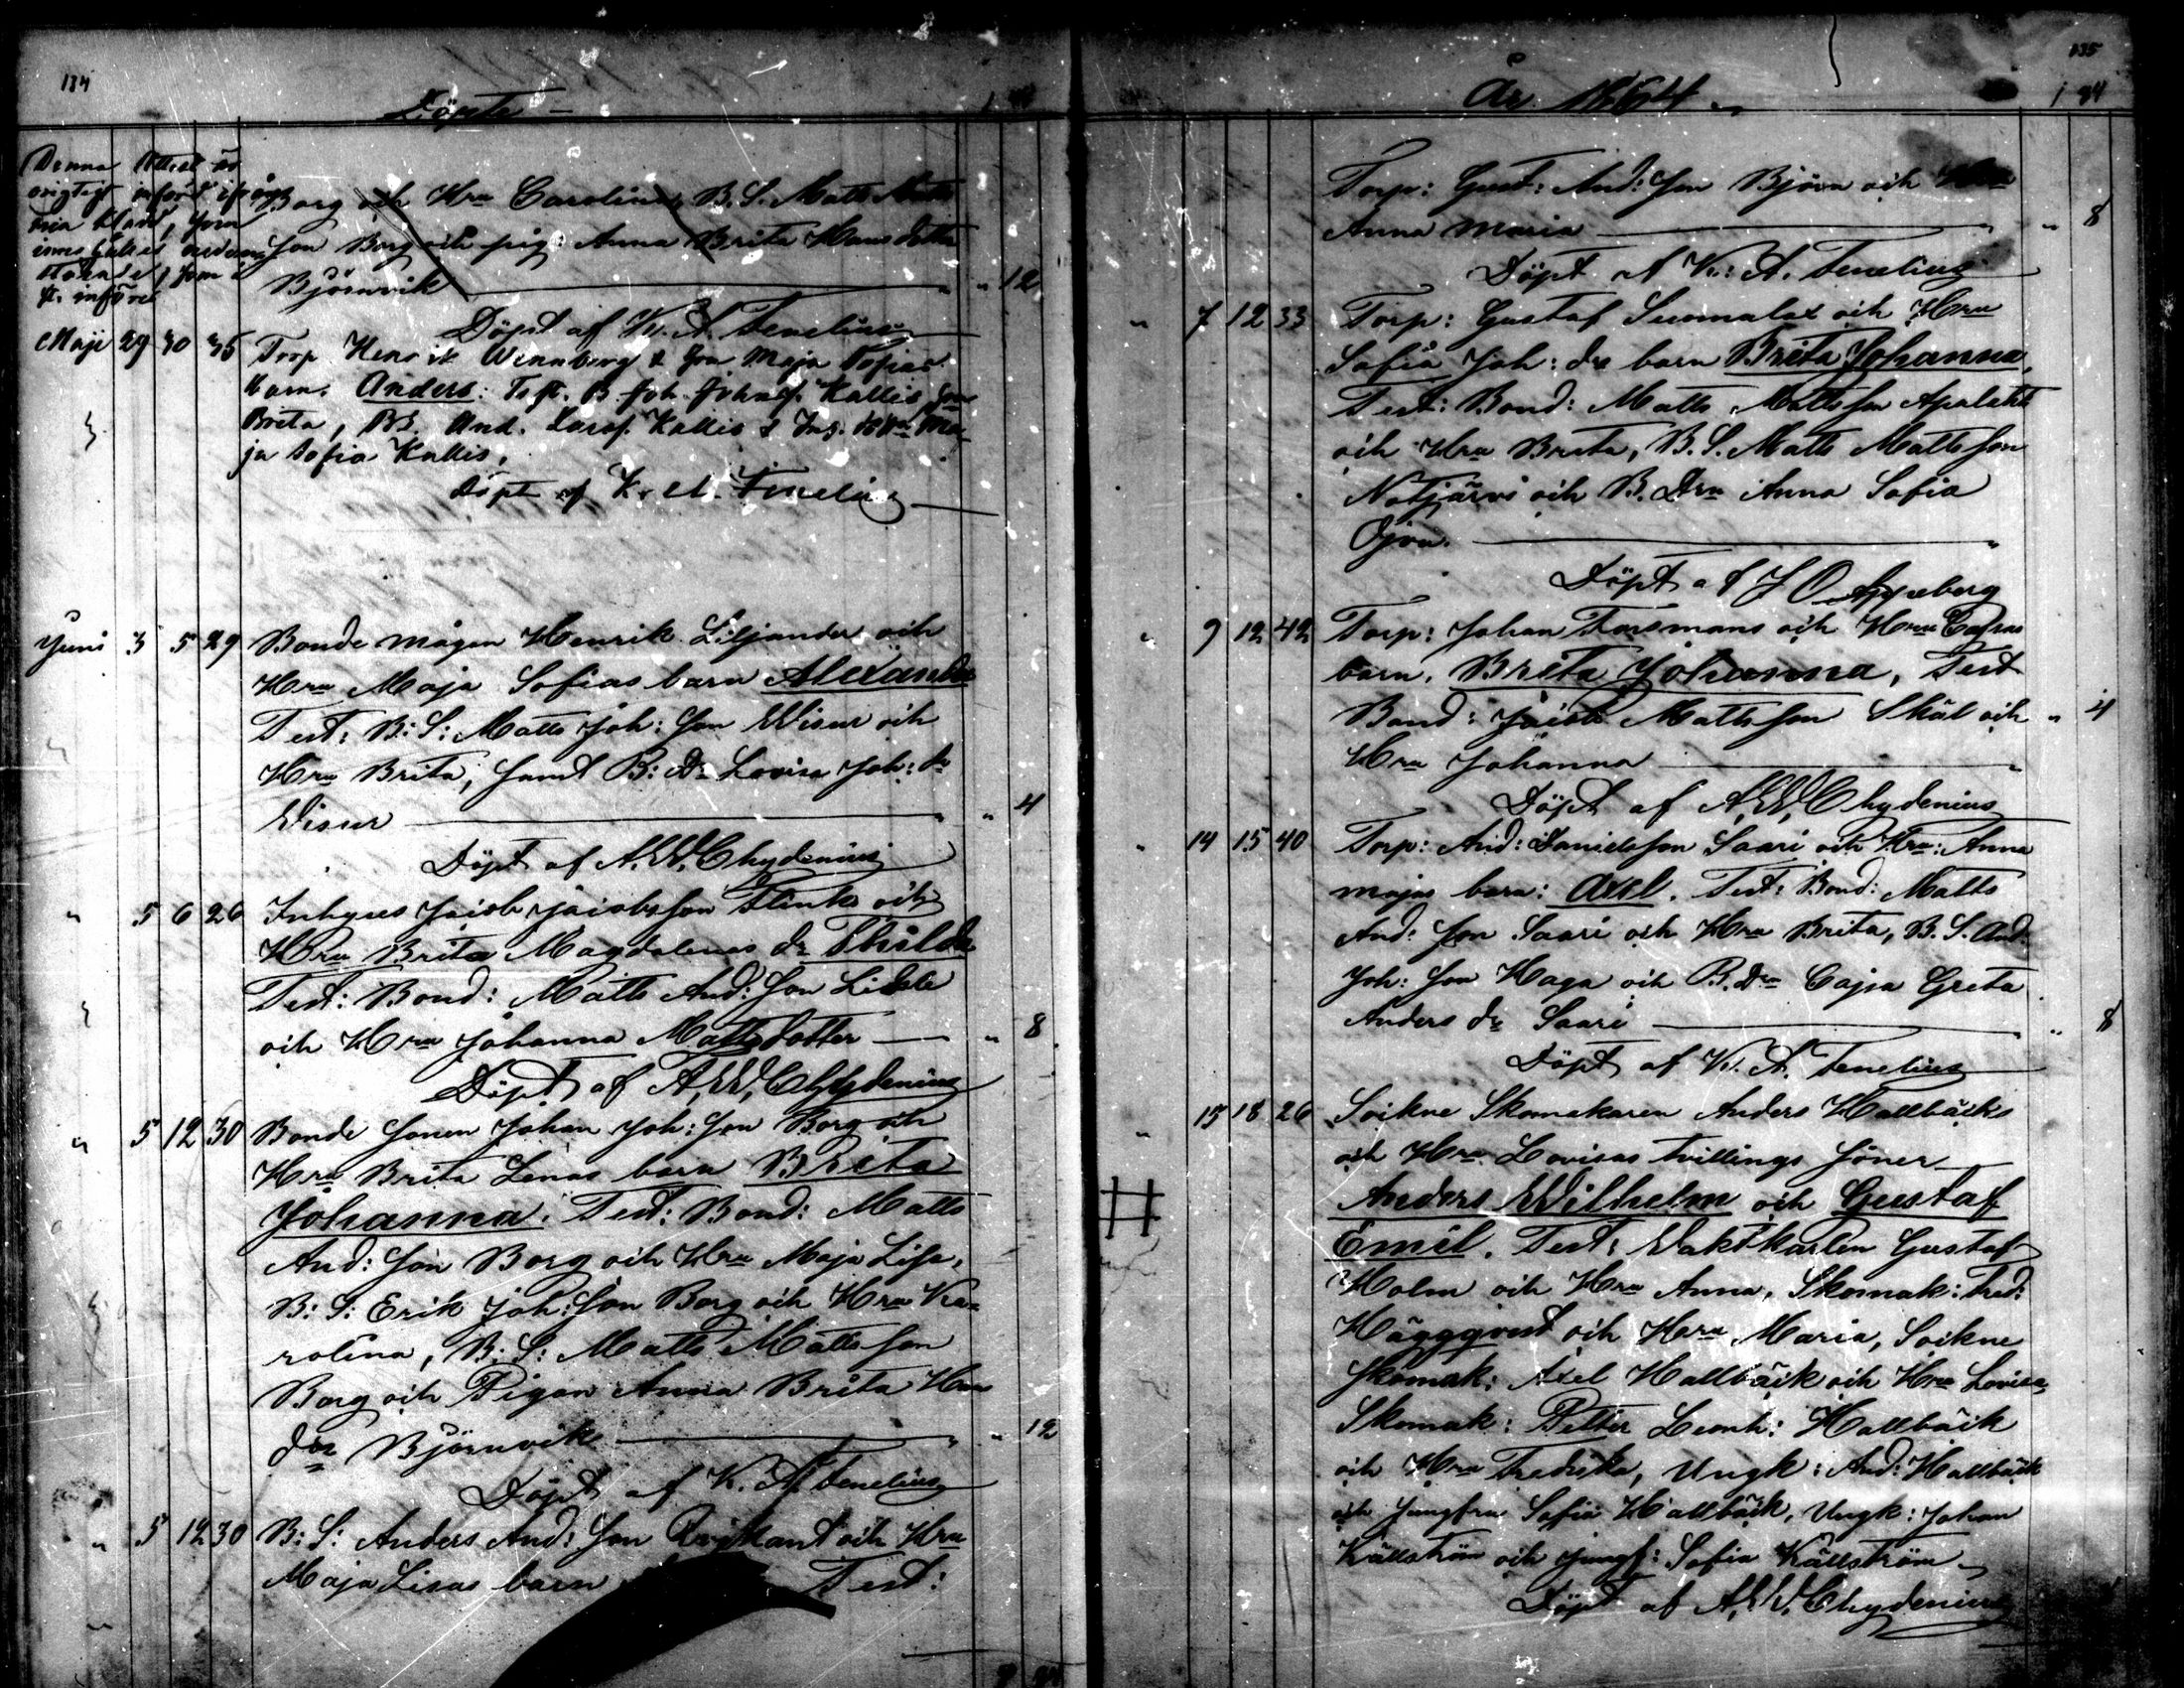 134
Döpte
Denna Attest är
origtigt införd ifrån
som
införes
Borg och Hru Carolina, B. S. Matts Matts
son Borg och pig: Anna Brita Hansdotter
Björnvik " 12
Döpt af K. A. Fenelius
Maji 29 30 35 Torp Henrik Wennberg & hru Maja Sofias
barn. Anders: Test. B. Joh. Johnsf. Kallis, hru
Brita, BS. And. Larsf. Kallis & Ma
ja Sofia Kallis,
döpt af K. A. Fenelius
Juni 3 5 29 Bonde mågen Henrik Liljander och
Hru Maja Sofias barn Alexander
Test: B: S: Matts Joh: Son Wisur och
Hru Brita, samt B: dr Lovisa Joh: dr
Wisur " 4
Döpt af A. W. Chydenius
" 5 6 26 Inhyses Jacob Jacobsson Flinks och
Hru Brita Magdalenas dr Thilda
Test: Bond: Matts And: Son Lidsle
och Hru Johanna Mattsdotter " 8
Döpt af A. W. Chydenius
" 5 12 30 Bonde Sonen Johan Joh: Son Borg och
Hru Brita Lenas barn Brita
Johanna. Test: Bond: Matts
And: Son Borg och Hru Maja Lisa,
B: S: Erik Joh: Son Borg och Hru Ka-
rolina, B: S: Matts Mattsson
Borg och Pigan Anna Brita Hans
dr Björnvik " 12
Döpt af K. A. Fenelius
" 5 12 30 B: S: Anders And: Son och Hru
Maja Lisas barn Test:
135
År 1864
Torp: Gust: And: Son Björn och Hru
Anna Maria " 8
Döpt af K: A. Fenelius
" 7 12 33 Torp: Gustaf Suomalax och Hru
Sofia Joh: drs barn Brita Johanna,
Test: Bond: Matts Mattsson
och Hru Brita, B. S. Matts Mattsson
Notjärvi och B. Dr Anna Sofia
Ojva.
Döpt af J O Appelberg
" 9 12 42 Torp: Johan Forsmans och Hru Cajsas
barn. Brita Johanna, Test
Bond: Jacob Mattsson Skäl och " 4
Hru Johanna
Döpt af A. W. Chydenius
" 14 15 40 Torp: And: Danielsson Saari och Hru: Anna
majas barn: Axel. Test: Bond: Matts
And: Son Saari och Hru Brita, B. S. And.
Joh: Son Haga och B. Dr Cajsa Greta
Anders dr Saari " 8
Döpt af K. A. Fenelius
" 15 18 26 Sockne Skomakaren Anders Hallbäcks
och Hru Lovisas tvillings söner
Anders Wilhelm och Gustaf
Emil. Test: Vaktkarlen Gustaf
Holm och Hru Anna, Skomak: Fred:
Häggqvist och Hru Maria, Sockne
Skomak: Axel Hallbäck och Hru Lovisa,
Skomak: Petter Leonh: Hallbäck
och Hru Fredrika, Ungk: And: Hallbäck
och Jungfru Sofia Hallbäck, Ungk: Johan
Källström och Jungf: Sofia Källström
Döpt af A. W. Chydenius